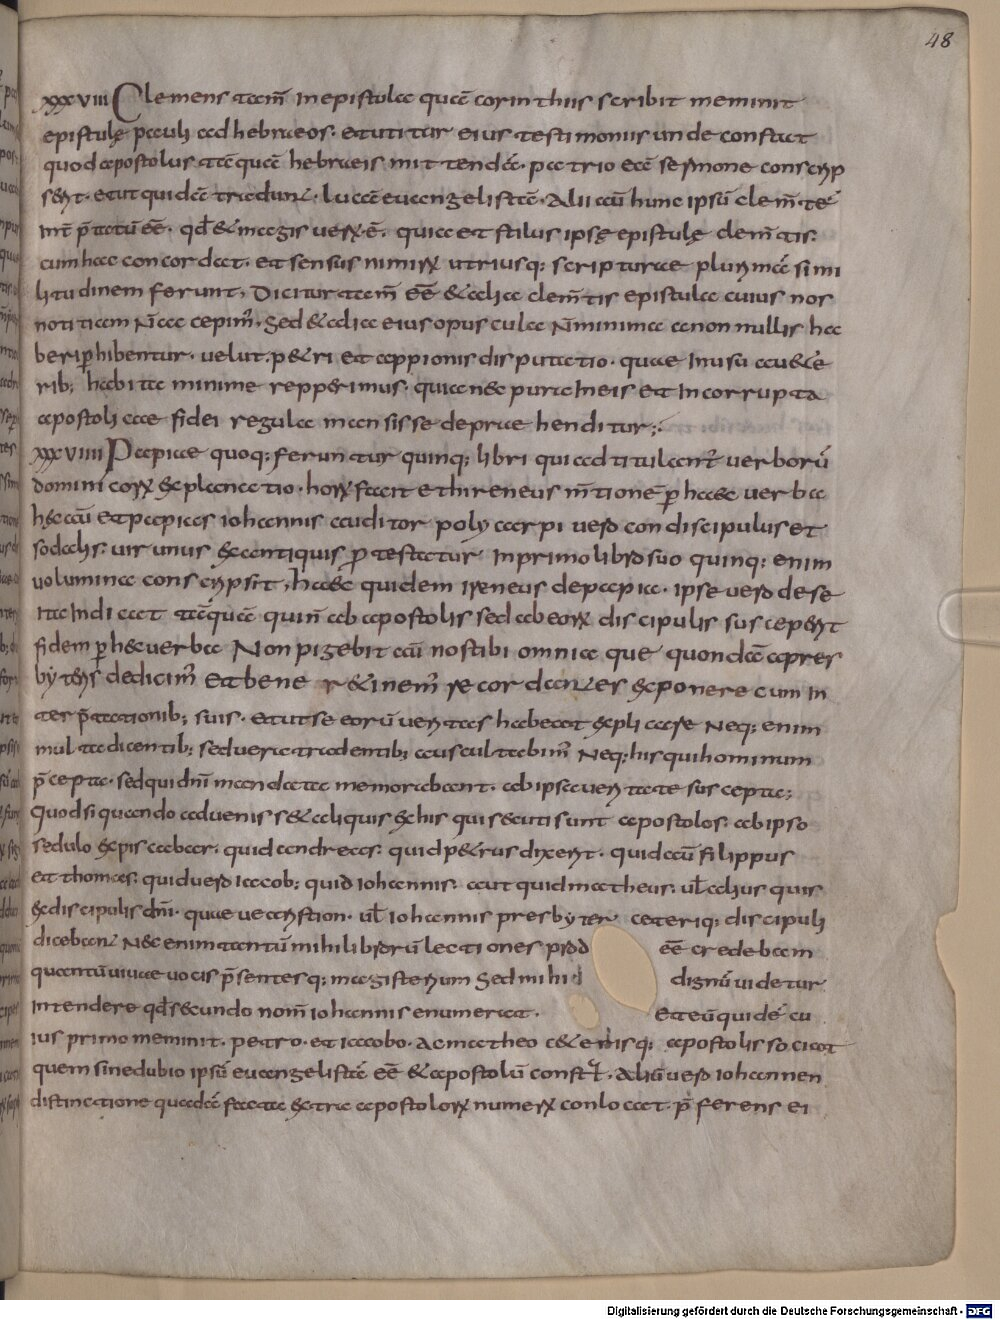 48
xxxviii Clemens tam̄ in epistola quā corinthiis scribit meminit
epistulę pauli ad hebraeos. et utitur eius testimoniis unde constat
quod apostolus tāquā hebraeis mittendā. patrio eā sermone conscrip
serit. et ut quidā tradunt. lucā euangelistā. Alii aū hunc ipsū clem̄tē
int̄p̄tatū eē. qd̄ & magis uerū ē. quia et stilus ipsę epistulę clem̄tis.
cum hac concordat. et sensus nimirū utriusq; scripturae plurimā simi
litudinem ferunt, Dicitur tam̄ eē & alia clem̄tis epistula cuius nos
notitiam n̄ accepim̄. Sed & alia eius opuscula n̄ minima a nonnullis ha
beri perhibentur. uelut. p&ri et appionis disputatio. quae in usu au&e
rib; habita minime repperimus. quia nec pura in eis et incorrupta
apostolicae fidei regula mansisse deprae henditur;.
xxxviiii Papiae quoq; feruntur quinq; libri qui ad titulant̄ uerborū
dominicorū explanatio. horū facit et hireneus m̄tionē per haec uerba
hec aū et papias iohannis auditor polycarpi uero condiscipulus et
sodalis. uir unus ex antiquis protestatur in primo libro suo quinq; enim
uolumina conscripsit, haec quidem ireneus de papia. ipse uero de se
ita indicat tāquā qui n̄ ab apostolis sed ab eorū discipulis susceperit
fidem per hec uerba Non pigebit aū nos tibi omnia que quondā a pres
byteris dedicim̄ et bene r&inem̄ recordantes exponere cum in
terp̄tationib; suis. et ut se eorū ueritas habeat explicare Neq; enim
multa dicentib; sed uera tradentib; auscultabim̄ Neq; his qui hominum
p̄cepta. sed qui dn̄i mandata memorabant. ab ipsa ueritate suscepta;
quod si quando aduenisset & aliquis ex his qui secuti sunt apostolos. ab ipso
sedulo expiscabar. quid andreas. quid p&rus dixerit. quid aū filippus
et thomas. quid uero iacob; quid iohannis. aut quid matheus. ul̄ alius quis
ex discipulis dn̄i. quae ue aristion. ul̄ iohannis presbyter ceteriq; discipuli
dicebant Nec enim tantū mihi librorū lectiones prod eē credebam
quantū uiuae uocis p̄sentesq; magisterium Sed mihi d dignū uidetur
intendere qd̄ secundo nom̄ iohannis enumerat. Et eū quidē cu
ius primo meminit. petro. et iacobo. ac matheo c&erisq; apostolis sociat
quem sine dubio ipsū euangelistā eē & apostolū constat. Aliū uero iohannen
distinctione quadā facta extra apostolorū numerū conlocat. p̄ferens ei
Digitalisierung gefördert durch die Deutsche Forschungsgemeinschaft - DFG